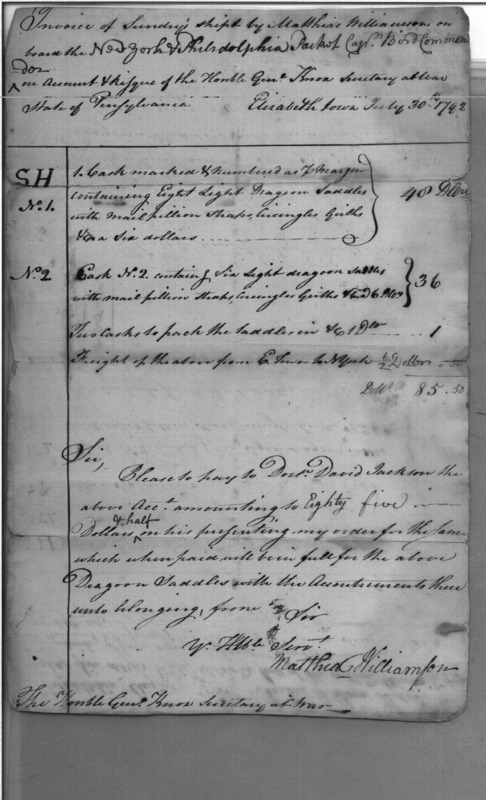 Invoice of Sundrys shipt by Matthias Williamson on
board the New York & Philadelphia Packet Capt. Bird Comman
der
on Account & risque of the Honble Genl. Knox Secretary at War
State of Pensylvania Elizabeth town July 30th 1792
SH
No. 1.
1. Cask marked & Numbered as Pr Margin
containing Eight Light Dragoon Saddles
with mail pillion Straps, Circingles Girths
&c a Six dollars 48 Dllrs
No. 2
Cask No. 2. containg Six Light dragoon Saddles
with mail pillion straps, Circingles Girths &c a 6 Dlrs 36
Two Casks to pack the saddles in &c 1 Dlr 1
Freight of the above from E Town to N York ½ Dollar 0 50
Dolls. 85.50
Sir,
Please to pay to Doctr. David Jackson the
above Acct. amounting to Eighty five
Dollars & half on his presenting my order for the same
which when paid will be in full for the above
Dragoon Saddles with the Accoutrements there
unto belonging, from Sir
Yr. Hble Servt.
Matthias Williamson
The Honble Genl. Knox Secretary at War